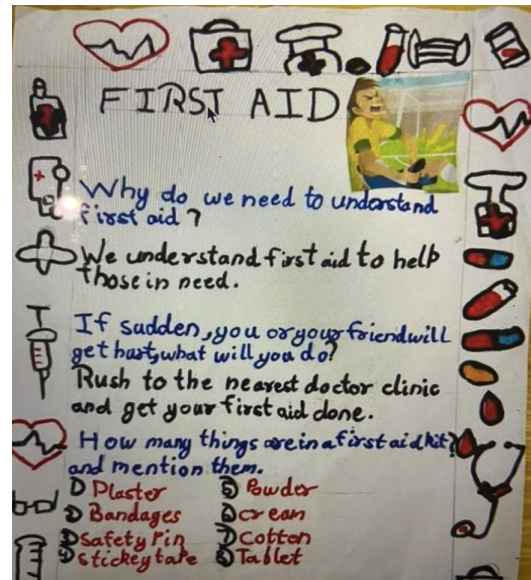 FIRST AID
Why do we need to understand
first aid?
We understand first aid to help
those in need.
If sudden, you or your friend will
get hurt, what will you do?
Rush to the nearest doctor clinic
and get your first aid done.
How many things are in a first aid kit?
and mention them.
Plaster
Powder
Bandages
cream
Safety Pin
Cotton
stickey tape
Tablet